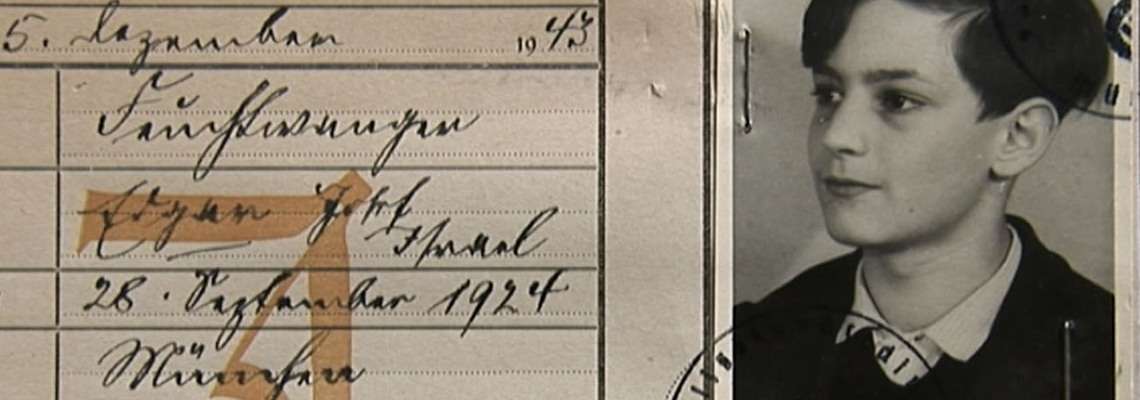 5. Dezember 1943
Feuchtwanger
Edgar Josef
Israel
28. September 1924
München
J